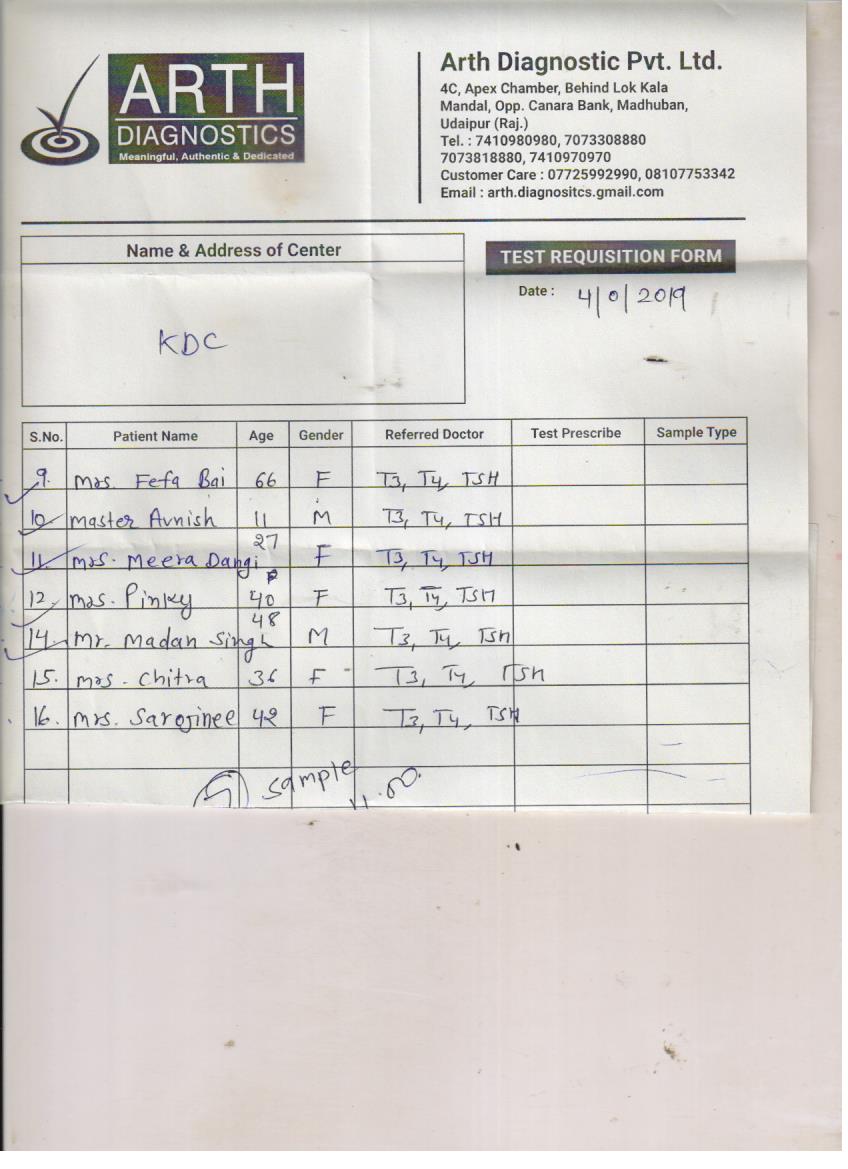 ARTH
DIAGNOSTICS
Meaningful, Authentic & Dedicated
Arth Diagnostic Pvt. Ltd.
4C, Apex Chamber, Behind Lok Kala
Mandal, Opp. Canara Bank, Madhuban,
Udaipur (Raj.)
Tel. : 7410980980, 7073308880
7073818880, 7410970970
Customer Care : 07725992990, 08107753342
Email : arth.diagnositcs.gmail.com
Name & Address of Center
KDC
TEST REQUISITION FORM
Date : 4/0/2019
S.No. Patient Name Age Gender Referred Doctor Test Prescribe Sample Type
9. Mrs. Fefa Bai 66 F T3, T4, TSH
10 Master Avnish 11 M T3, T4, TSH
11. Mrs. Meera Dangi 27 F T3, T4, TSH
12. Mrs. Pinky 40 F T3, T4, TSH
14. Mr. Madan Singh 48 M T3, T4, TSH
15. Mrs. Chitra 36 F T3, T4, TSH
16. Mrs. Sarojinee 42 F T3, T4, TSH
Sample